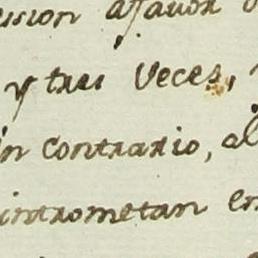 ession afavor
y tres veces,
in contrario, al
intrometan en